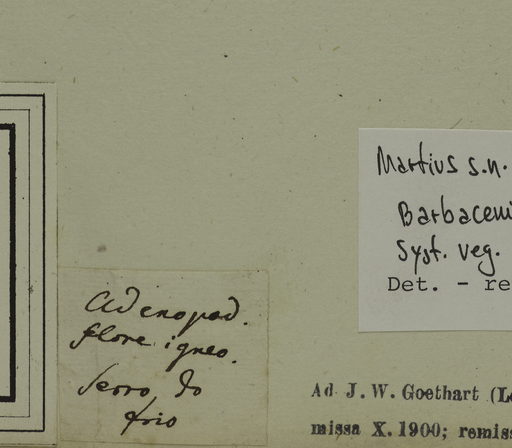 Martius s.n.
Barbaceni
Syst. veg.
Det. - re
Adenopod.
flore igneo.
Serro do
frio
Ad J. W. Goethart (L
missa X. 1900; remiss